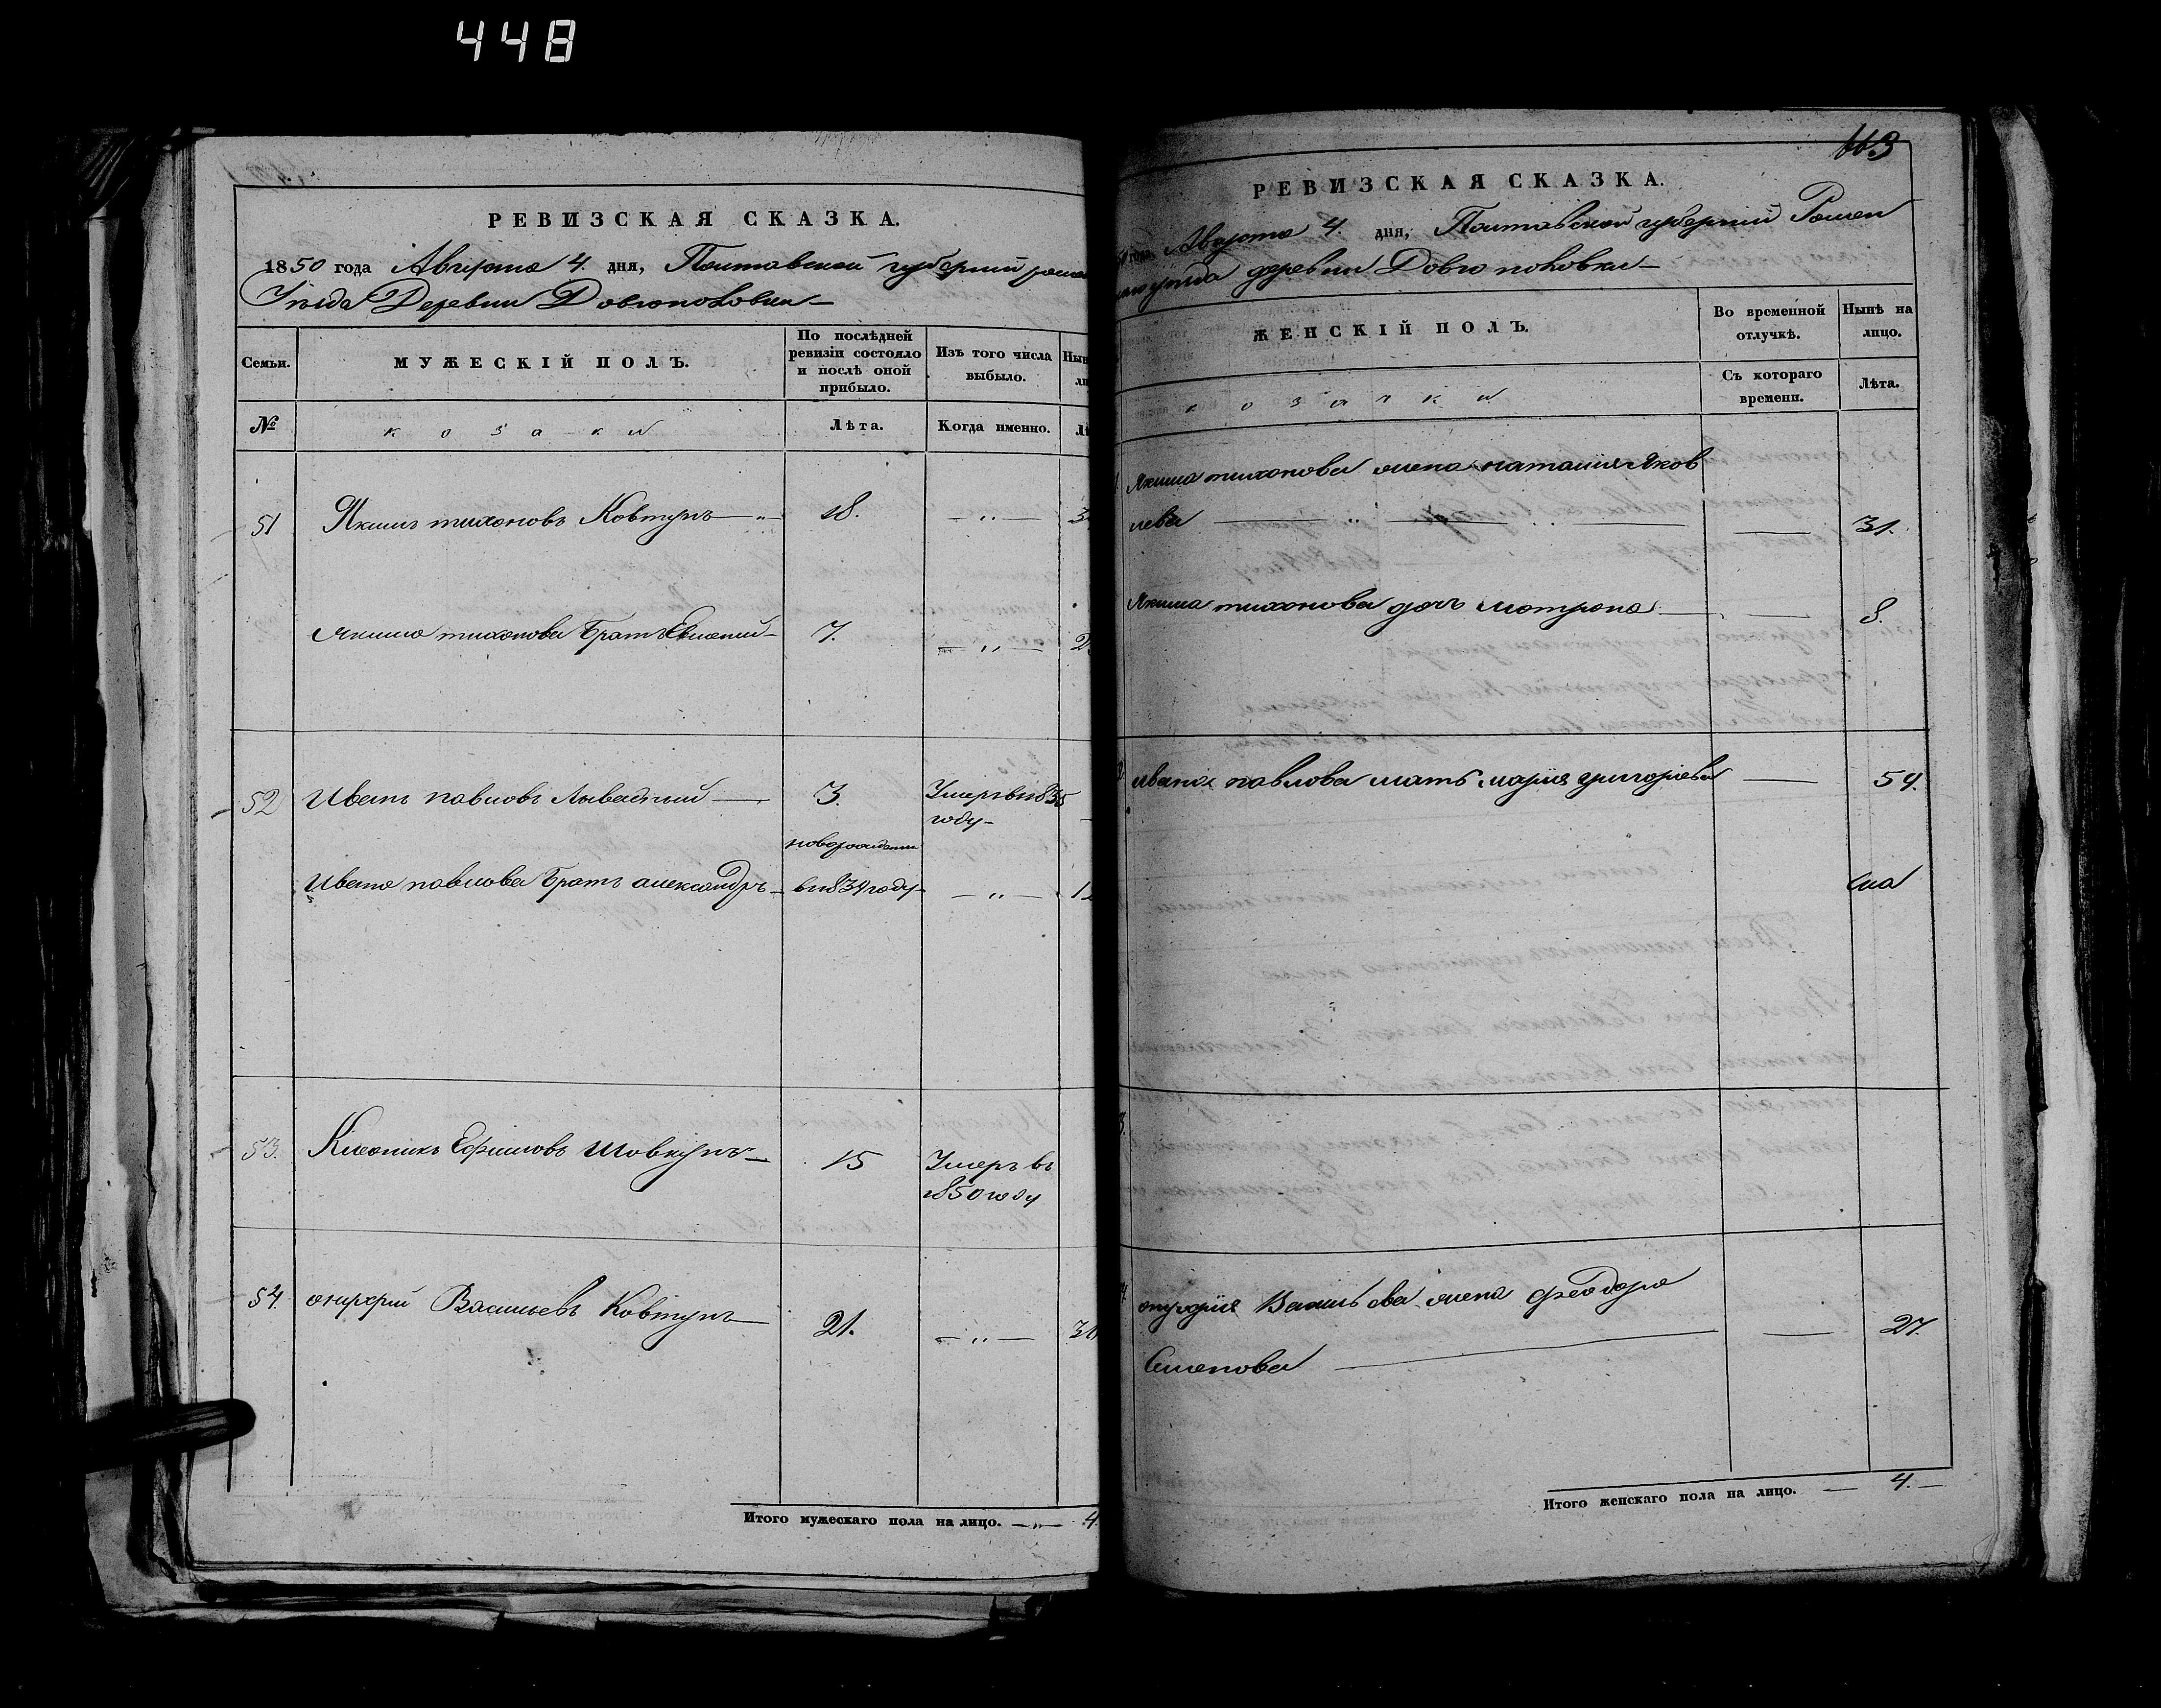 448
РЕВИЗСКАЯ СКАЗКА.
1850 года Августа 4. дня, Полтавской губернии
Уѣзда Деревни Довгополовки
Семьи.
МУЖЕСКІЙ ПОЛЪ.
По послѣдней ревизіи состояло и послѣ оной прибыло.
Изъ того числа выбыло.
№
козаки
Лѣта.
Когда именно.
51 Якимъ тихоновъ Ковтунъ 18.
Якима тихонова братъ 7.
52 Иванъ павловъ 3. Умеръ в 1835
году
новорожденъ
Ивана павлова братъ александръ в 1834 году
53. Ефимовъ Шовкунъ 15 Умеръ въ
1850 году
54. Васильевъ Ковтунъ 21.
Итого мужескаго пола на лицо. 4.
113
РЕВИЗСКАЯ СКАЗКА.
года Августа 4. дня, Полтавской губерніи Ромен
уѣзда деревни Довгополовки
ЖЕНСКІЙ ПОЛЪ.
Во временной отлучкѣ.
Нынѣ на лицо.
козачки
Съ котораго времени.
Лѣта.
Якима тихонова жена наталия Яков
лева 31.
Якима тихонова дочь мотрона 8.
Ивана павлова мать мария григориева 54.
Васильева жена феодора
27.
Семенова
Итого женскаго пола на лицо. 4.